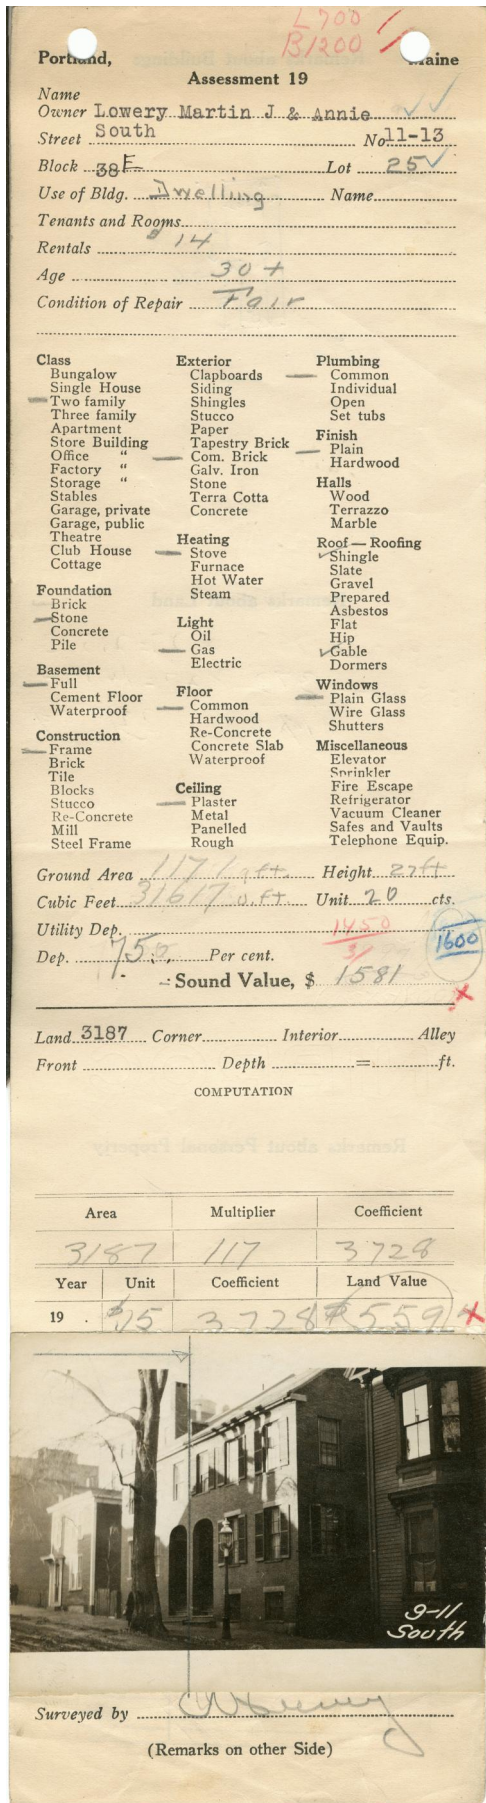 L 700
B 1200
Portland, Maine
Assessment 19
Name
Owner Lowery Martin J & Annie
Street South No 11-13
Block 38 E Lot 25
Use of Bldg. Dwelling Name
Tenants and Rooms
Rentals $ 14
Age 30 +
Condition of Repair Fair
Class
Bungalow
Single House
Two family
Three family
Apartment
Store Building
Office "
Factory "
Storage "
Stables
Garage, private
Garage, public
Theatre
Club House
Cottage
Foundation
Brick
Stone
Concrete
Pile
Basement
Full
Cement Floor
Waterproof
Construction
Frame
Brick
Tile
Blocks
Stucco
Re-Concrete
Mill
Steel Frame
Exterior
Clapboards
Siding
Shingles
Stucco
Paper
Tapestry Brick
Com. Brick
Galv. Iron
Stone
Terra Cotta
Concrete
Heating
Stove
Furnace
Hot Water
Steam
Light
Oil
Gas
Electric
Floor
Common
Hardwood
Re-Concrete
Concrete Slab
Waterproof
Ceiling
Plaster
Metal
Panelled
Rough
Plumbing
Common
Individual
Open
Set tubs
Finish
Plain
Hardwood
Halls
Wood
Terrazzo
Marble
Roof — Roofing
Shingle
Slate
Gravel
Prepared
Asbestos
Flat
Hip
Gable
Dormers
Windows
Plain Glass
Wire Glass
Shutters
Miscellaneous
Elevator
Sprinkler
Fire Escape
Refrigerator
Vacuum Cleaner
Safes and Vaults
Telephone Equip.
Ground Area 1171 ft. Height 27 ft
Cubic Feet 31617 ft. Unit 20 cts.
Utility Dep. 1450
1600
Dep. 75 Per cent.
Sound Value, $ 1581
Land 3187 Corner Interior Alley
Front Depth = ft.
COMPUTATION
Area Multiplier Coefficient
3187 117 3728
Year Unit Coefficient Land Value
19 . $15 3728 $559
9-11
South
Surveyed by
(Remarks on other Side)